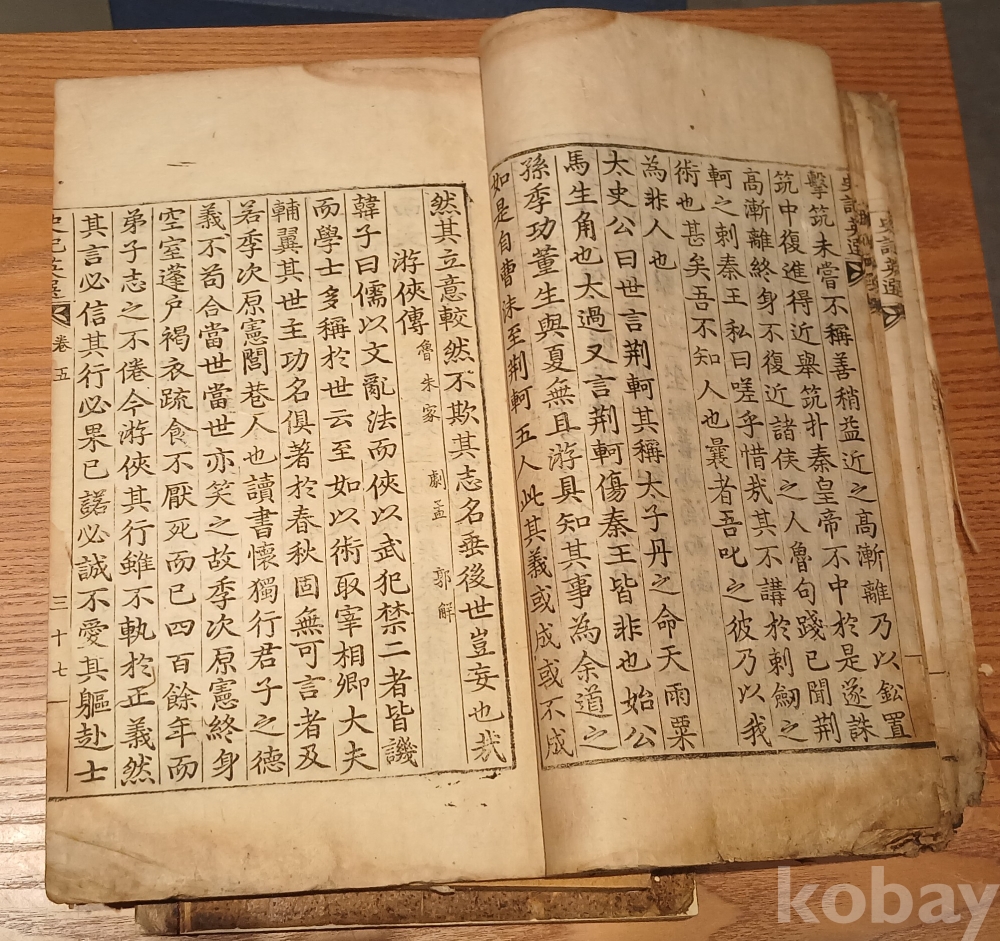 擊筑未嘗不稱善稍益近之高漸離乃以鈆置
筑中復進得近舉筑扑秦皇帝不中於是遂誅
高漸離終身不復近諸侯之人魯句踐已聞荆
軻之刺秦王私曰嗟乎惜㢤其不講於刺劒之
術也甚矣吾不知人也曩者吾叱之彼乃以我
為非人也
太史公曰世言荆軻其稱太子丹之命天雨粟
馬生角也太過又言荆軻傷秦王皆非也始公
孫季功董生與夏無且游具知其事為余道之
如是自曹沫至荆軻五人此其義或成或不成
然其立意較然不欺其志名垂後世豈妄也㢤
游俠傳 魯朱家 劇孟 郭解
韓子曰儒以文亂法而俠以武犯禁二者皆譏
而學士多稱於世云至如以術取宰相卿大夫
輔翼其世主功名俱著於春秋固無可言者及
若季次原憲閭巷人也讀書懷獨行君子之德
義不苟合當世當世亦笑之故季次原憲終身
空室蓬户褐衣疏食不厭死而已四百餘年而
弟子志之不倦今游俠其行雖不軌於正義然
其言必信其行必果已諾必誠不愛其軀赴士
史記英選 卷五 三十七
史記英選
kobay